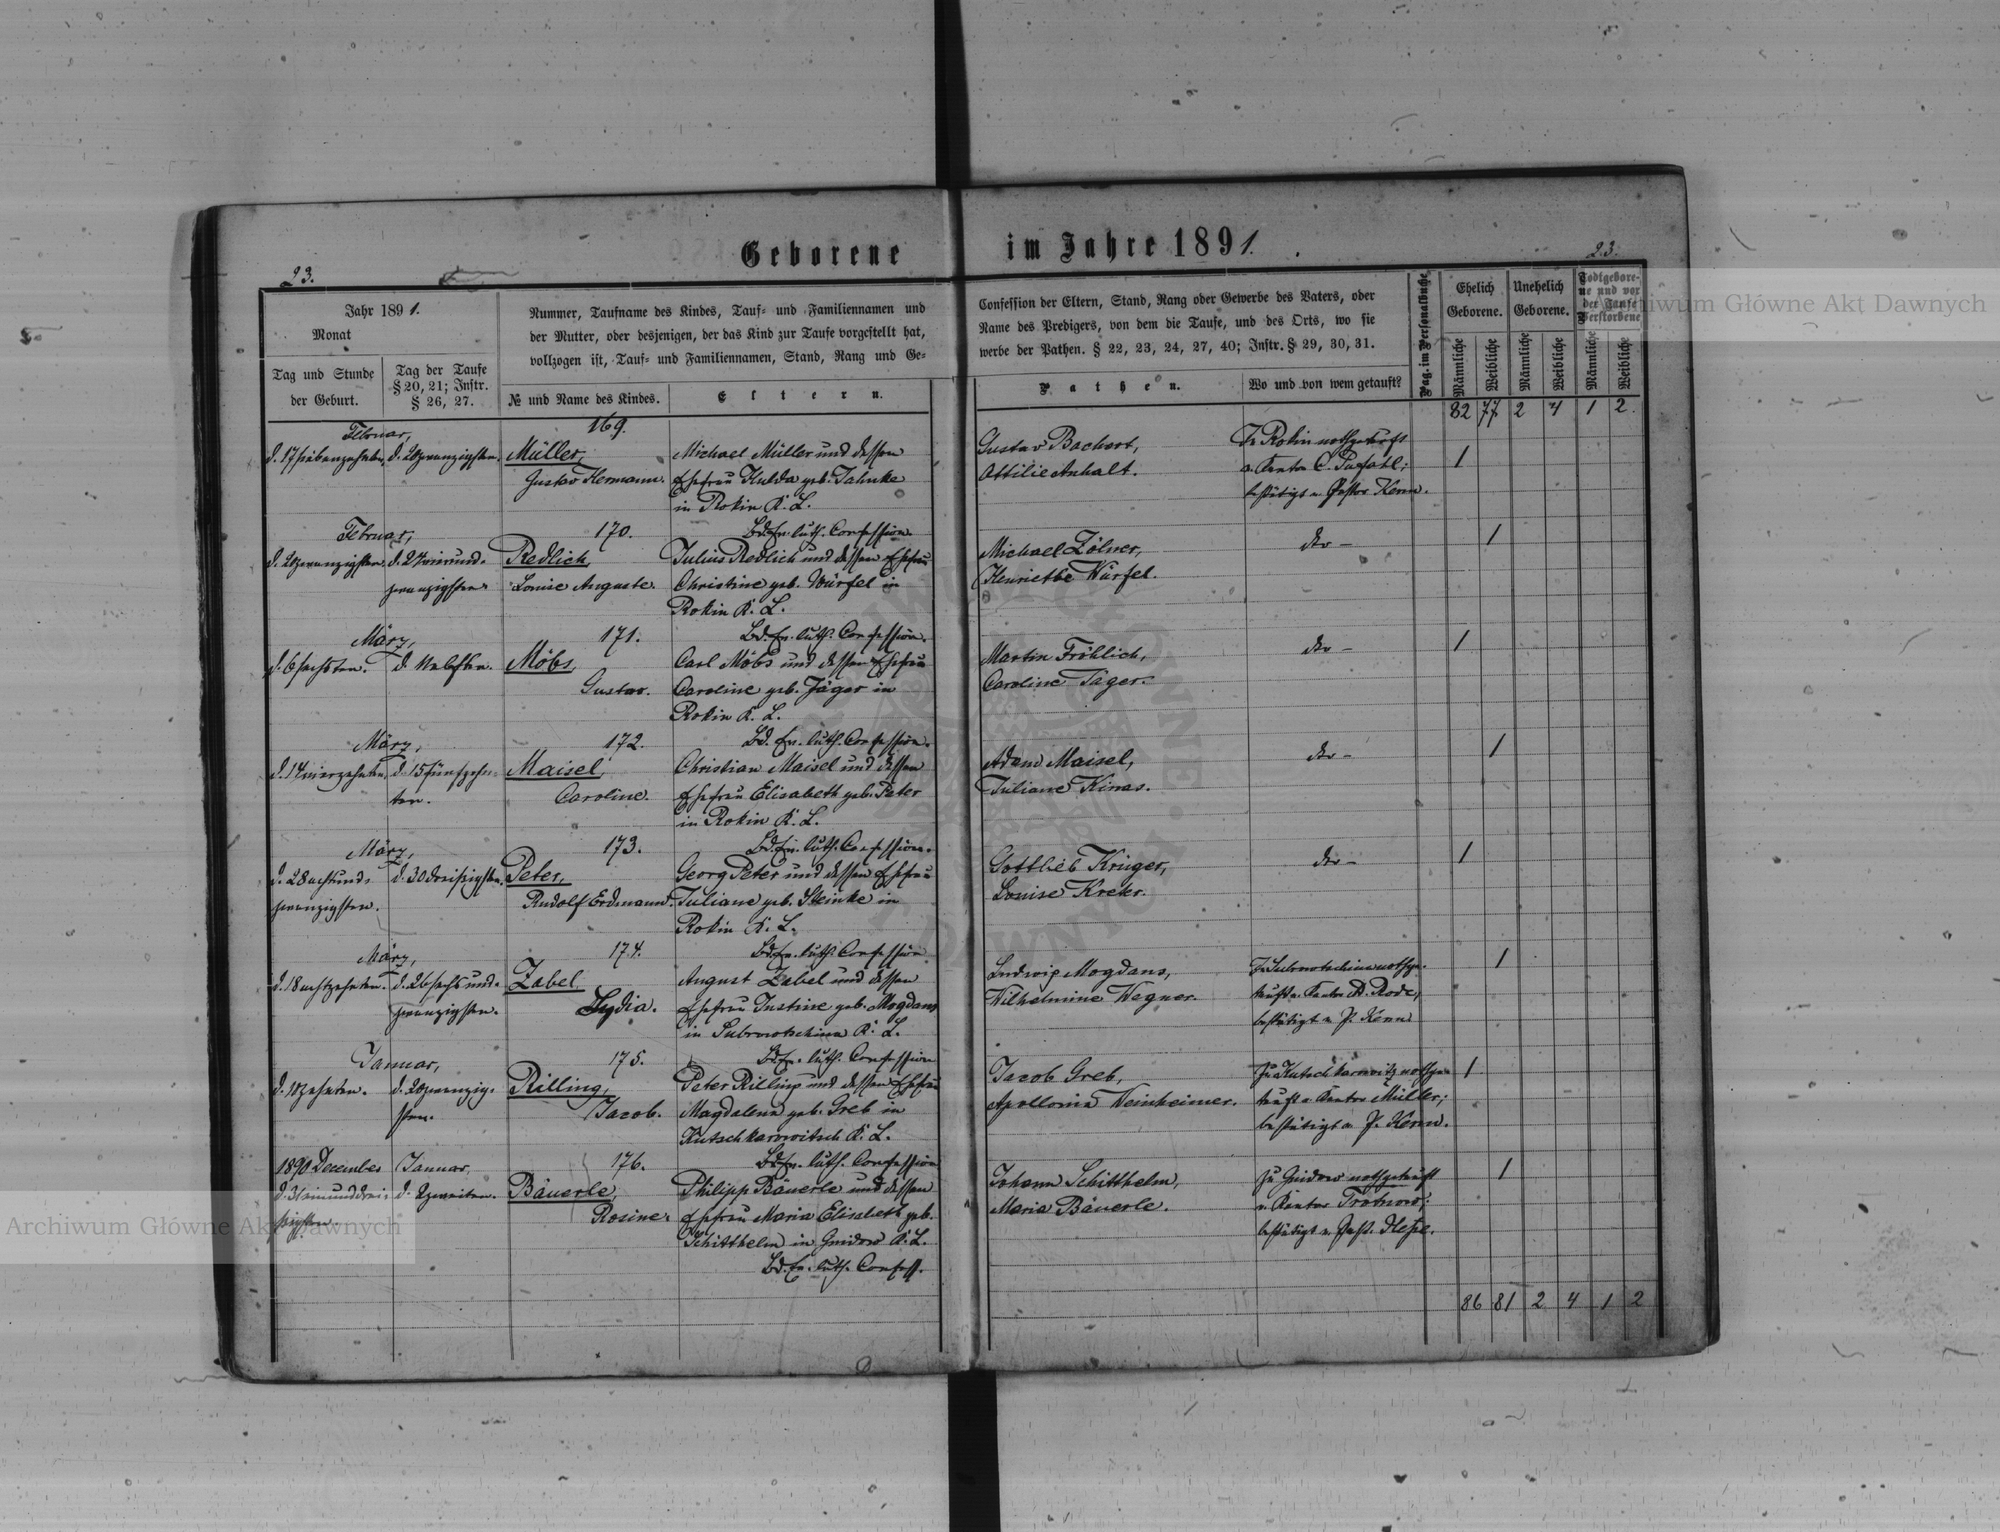 Geborene im Jahre 1891.
23.
23.
Jahr 1891.
Monat
Tag und Stunde
der Geburt.
Tag der Taufe
§ 20, 21; Instr.
§ 26, 27.
Nummer, Taufname des Kindes, Tauf- und Familiennamen und
der Mutter, oder desjenigen, der das Kind zur Taufe vorgestellt hat,
vollzogen ist, Tauf- und Familiennamen, Stand, Rang und Ge-
№ und Name des Kindes.
Eltern.
Confession der Eltern, Stand, Rang oder Gewerbe des Vaters, oder
Name des Predigers, von dem die Taufe, und des Orts, wo sie
werbe der Pathen. § 22, 23, 24, 27, 40; Instr. § 29, 30, 31.
Pathen.
Wo und von wem getauft?
Pag. im Personalbuche
Ehelich
Geborene.
Unehelich
Geborene.
Todtgebore-
ne und vor
der Taufe
Verstorbene
Männliche
Weibliche
Männliche
Weibliche
Männliche
Weibliche
82 77 2 4 1 2
Februar,
d. 17 siebenzehnten.
d. 20 zwanzigsten.
169.
Müller,
Gustav Hermann.
Michael Müller und dessen
Ehefrau Hulda geb. Jahnke
in Rokin K. L.
Bd. Ev. luth. Confession
Gustav Bachert,
Ottilie Anhalt.
Zu Rokin nothgetauft
v. Kantor C.
bestätigt v. Pastor Kern.
1
Februar,
d. 20 zwanzigsten.
d. 24 vierund-
zwanzigsten.
170.
Redlich,
Louise Auguste.
Julius Redlich und dessen Ehefrau
Christine geb. Würfel in
Rokin K. L.
Bd. Ev. luth. Confession.
Michael Zölner,
Henriette Würfel.
dto –
1
März,
d. 6 sechsten.
d. 11 elften.
171.
Möbs,
Gustav.
Carl Möbs und dessen Ehefrau
Caroline geb. Jäger in
Rokin K. L.
Bd. Ev. luth. Confession.
Martin Fröhlich,
Caroline Jäger.
dto –
1
März,
d. 14 vierzehnten.
d. 15 fünfzehn-
ten.
172.
Maisel,
Caroline.
Christian Maisel und dessen
Ehefrau Elisabeth geb. Peter
in Rokin K. L.
Bd. Ev. luth. Confession.
Adam Maisel,
Juliane Kinas.
dto –
1
März,
d. 28 achtund-
zwanzigsten.
d. 30 dreißigsten.
173.
Peter,
Rudolf Erdmann.
Georg Peter und dessen Ehefrau
Juliane geb. Steinke in
Rokin K. L.
Bd. Ev. luth. Confession
Gottlieb Krüger,
Louise Kreter.
dto –
1
März,
d. 18 achtzehnten.
d. 26 sechsund-
zwanzigsten.
174.
Zabel
Lydia.
August Zabel und dessen
Ehefrau Justine geb. Mogdans
in Subrowtschina K. L.
Bd. Ev. luth. Confession
Ludwig Mogdans,
Wilhelmine Wegner.
Zu Subrowtschina nothge-
tauft v. Kantor A. Rode,
bestätigt v. P. Kern
1
Januar,
d. 10 zehnten.
d. 20 zwanzig-
sten.
175.
Rilling,
Jacob.
Peter Rilling und dessen Ehefrau
Magdalena geb. Greb in
Kutschkarowitsch K. L.
Bd. Ev. luth. Confession
Jacob Greb,
Apollonia Weinheimer.
Zu Kutschkarowitz nothge-
tauft v. Kantor Müller;
bestätigt v. P. Kern.
1
1890 December
d. 31 einunddrei-
ßigsten.
Januar
d. 2 zweiten.
176.
Bäuerle,
Rosine.
Philipp Bäuerle und dessen
Ehefrau Maria Elisabeth geb.
Schitthelm in Gnidow K. L.
Bd. Ev. luth. Confess.
Johann Schitthelm,
Maria Bäuerle.
Zu Gnidow nothgetauft
v. Kantor
bestätigt v. Past.
1
86 81 2 4 1 2
Archiwum Główne Akt Dawnych
Archiwum Główne Akt Dawnych